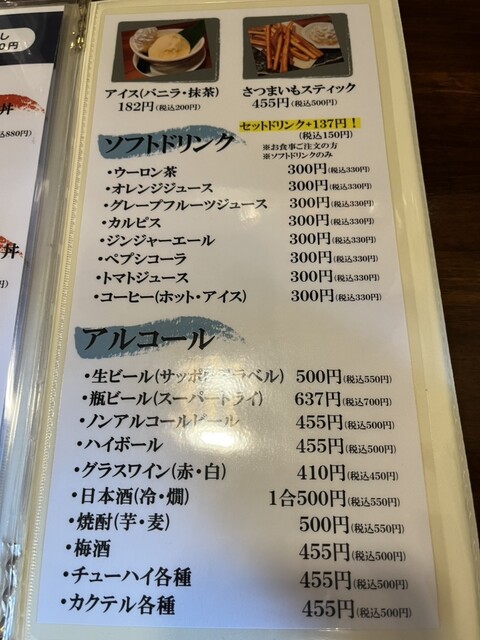 し
0円
丼
込880円)
丼
円)
アイス(バニラ・抹茶)
182円(税込200円)
さつまいもスティック
455円(税込500円)
セットドリンク+137円!
(税込150円)
※お食事ご注文の方
※ソフトドリンクのみ
ソフトドリンク
・ウーロン茶 300円(税込330円)
・オレンジジュース 300円(税込330円)
・グレープフルーツジュース 300円(税込330円)
・カルピス 300円(税込330円)
・ジンジャーエール 300円(税込330円)
・ペプシコーラ 300円(税込330円)
・トマトジュース 300円(税込330円)
・コーヒー(ホット・アイス) 300円(税込330円)
アルコール
・生ビール(サッポロ ラベル) 500円(税込550円)
・瓶ビール(スーパードライ) 637円(税込700円)
・ノンアルコールビール 455円(税込500円)
・ハイボール 455円(税込500円)
・グラスワイン(赤・白) 410円(税込450円)
・日本酒(冷・燗) 1合500円(税込550円)
・焼酎(芋・麦) 500円(税込550円)
・梅酒 455円(税込500円)
・チューハイ各種 455円(税込500円)
・カクテル各種 455円(税込500円)